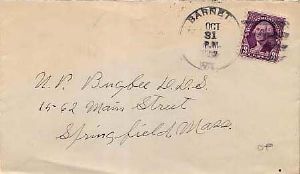 BARNET
OCT
31
P.M.
N. P. Bugbee D.D.S.
1562 Main Street
Springfield Mass.